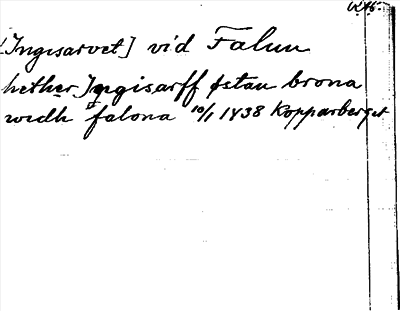 [Ingisarvet] vid Falun
hether Ingisarff østan brona
widh falona 10/1 1438 Kopparberget